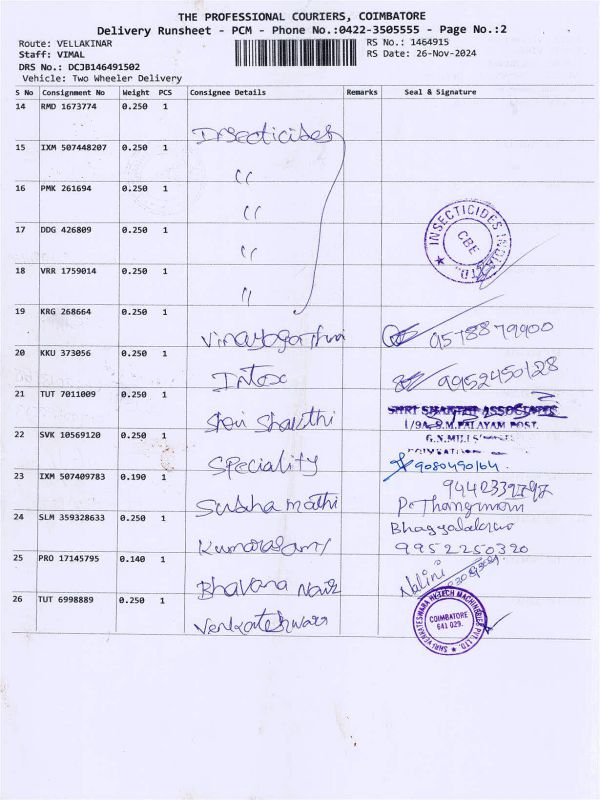 THE PROFESSIONAL COURIERS, COIMBATORE
Delivery Runsheet - PCM - Phone No.:0422-3505555 - Page No.:2
Route: VELLAKINAR
Staff: VIMAL
DRS No.: DCJB146491502
Vehicle: Two Wheeler Delivery
RS No.: 1464915
RS Date: 26-Nov-2024
S No Consignment No Weight PCS Consignee Details Remarks Seal & Signature
14 RMD 1673774 0.250 1 Insecticides
15 IXM 507448207 0.250 1 "
16 PMK 261694 0.250 1 "
17 DDG 426809 0.250 1 "
18 VRR 1759014 0.250 1 "
INSECTICIDES INDIA LTD.
CBE
19 KRG 268664 0.250 1 9578879900
20 KKU 373056 0.250 1 Intox 9952450128
21 TUT 7011009 0.250 1 Shri Shakthi
SHRI SHAKTHI ASSOCIATES
1/9A, S.M.PALAYAM POST,
G.N.MILLS
22 SVK 10569120 0.250 1 Speciality 9080490164.
23 IXM 507409783 0.190 1 Subha mathi
P. Thangamani
24 SLM 359328633 0.250 1 Kumarasamy
9952250320
25 PRO 17145795 0.140 1 Bhavana Nair Nalini
26 TUT 6998889 0.250 1 Venkateshwara
SHRI VENKATESWARA HI-TECH MACHINERIES PVT. LTD.
COIMBATORE
641 029.